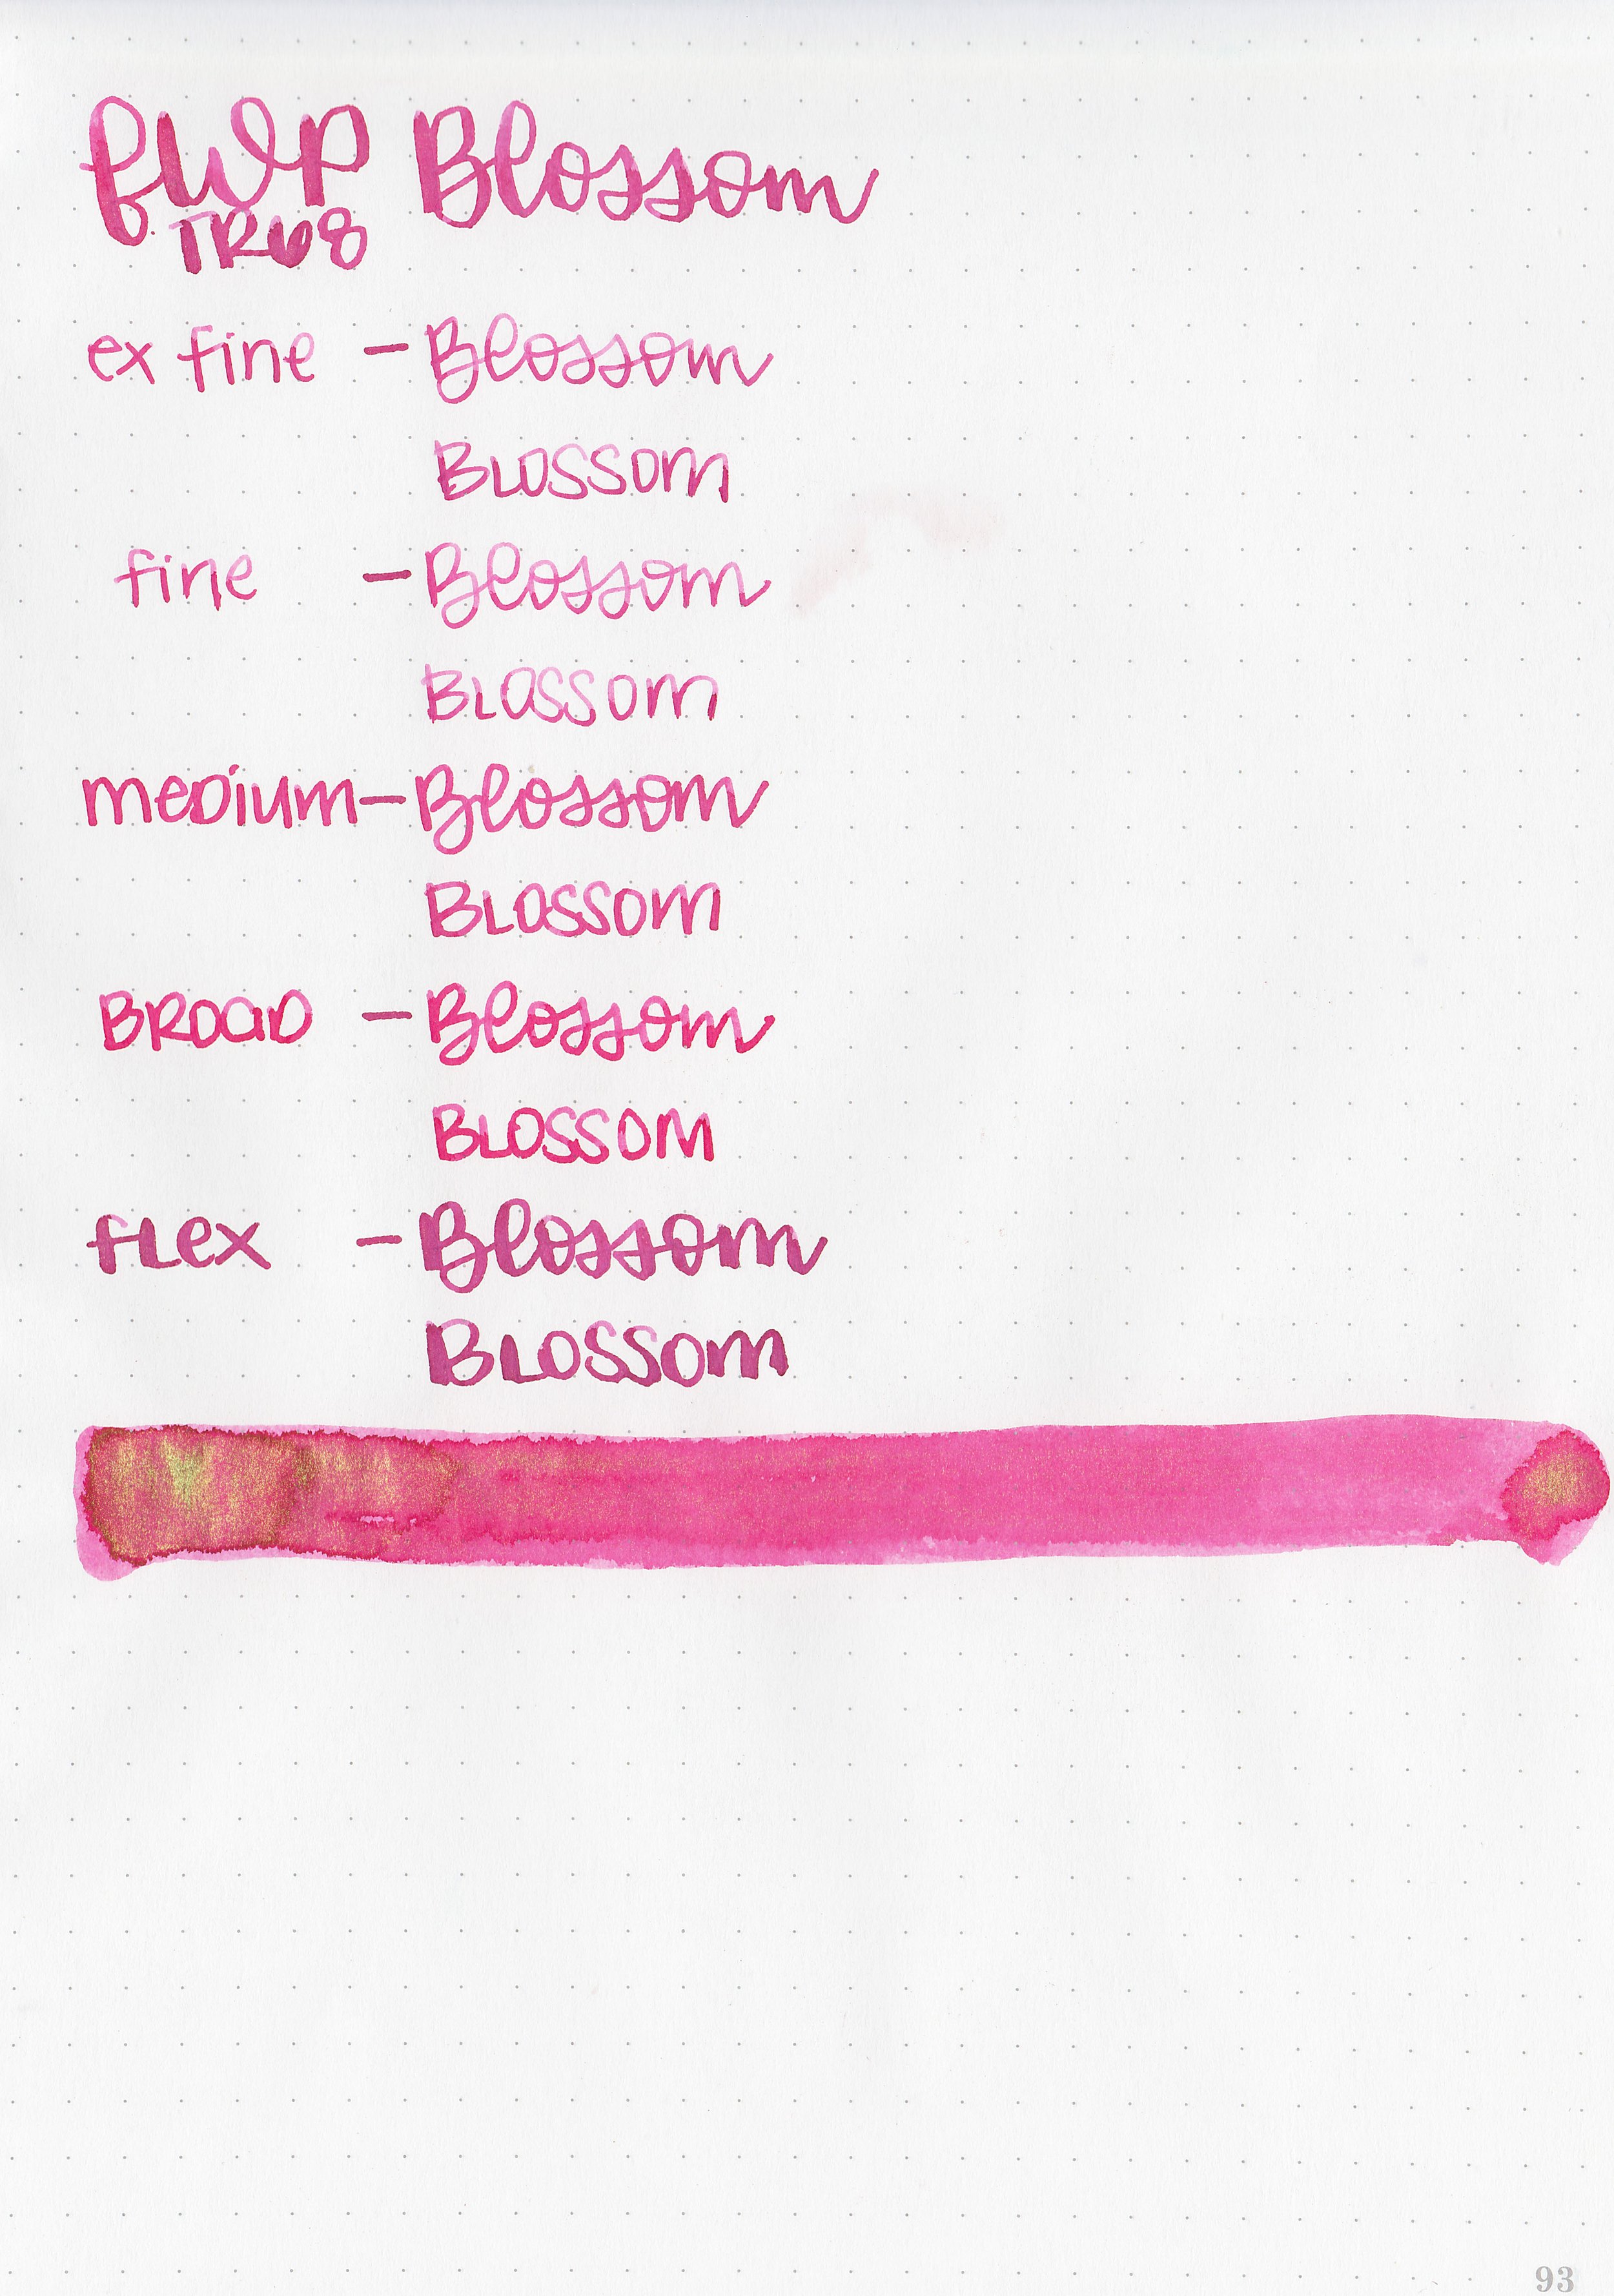 fwp Blossom
TR68
ex fine - Blossom
Blossom
fine - Blossom
Blossom
medium - Blossom
Blossom
Broad - Blossom
Blossom
flex - Blossom
Blossom
93